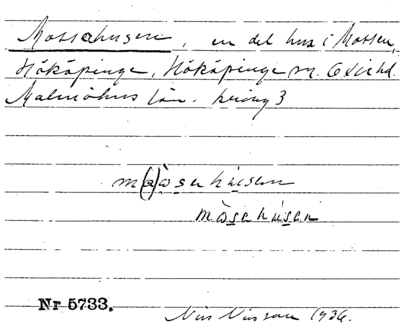 Mossahusen, en del hus i Mossen,
Hököpinge, Hököpinge sn. Oxie hd.
Malmöhus län. 3
m(a)åsehúsen
måsehúsen
Nr 5733.
Nils Nilsson 1936.